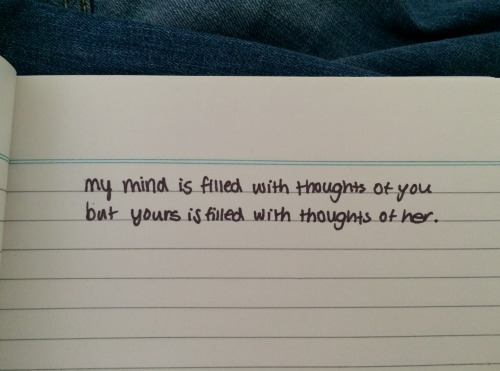 my mind is filled with thoughts of you
but yours is filled with thoughts of her.